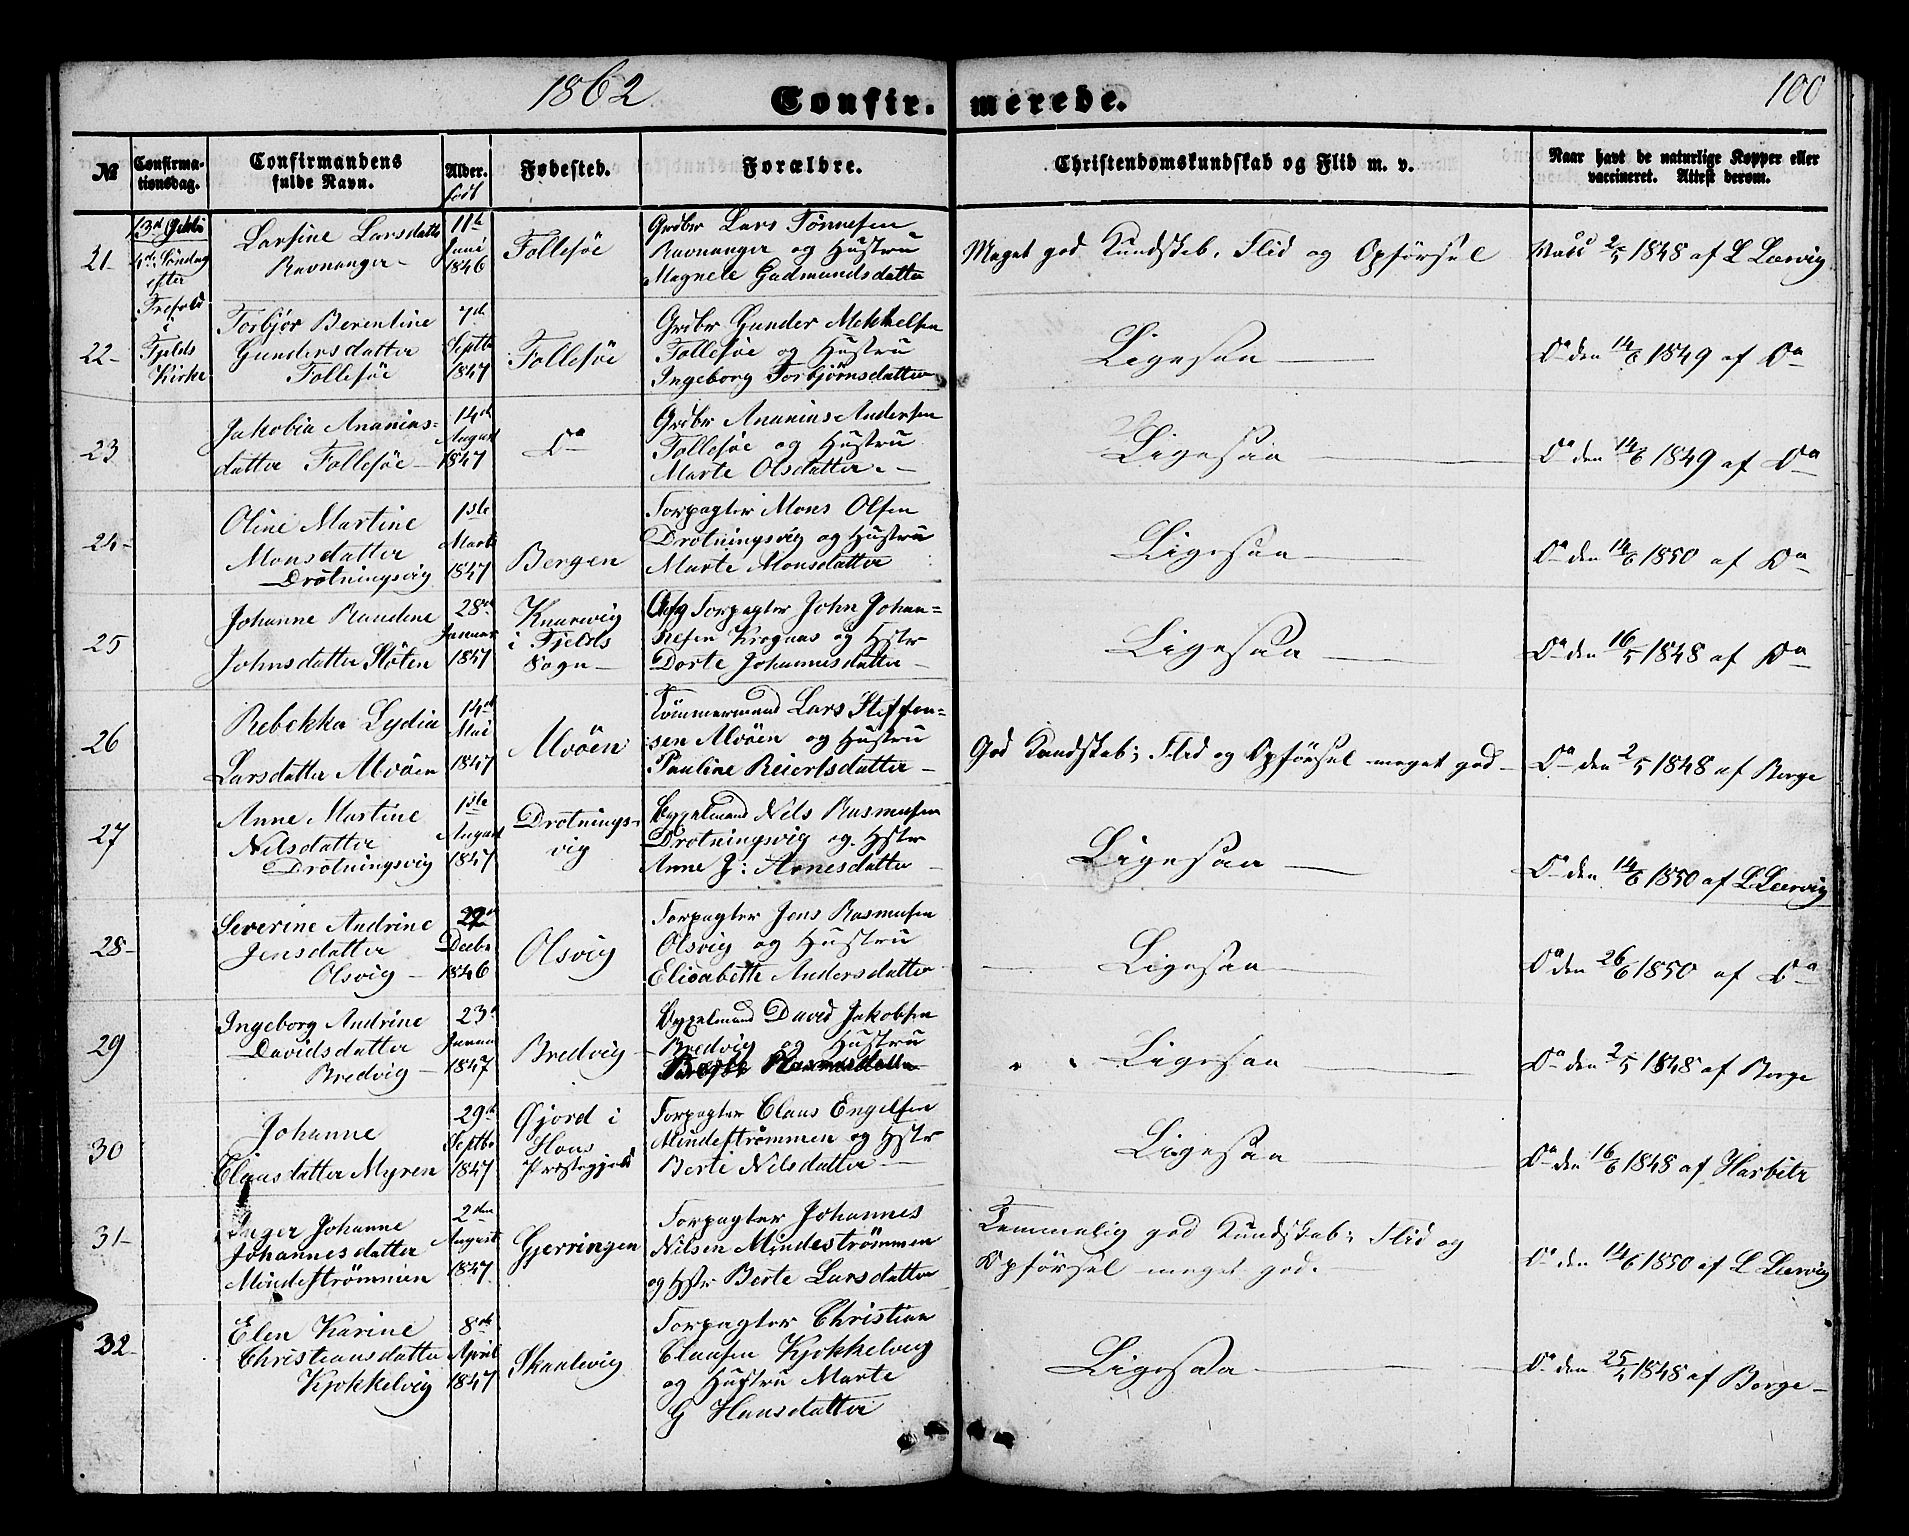 1862
Confirmerede.
100
№
Confirmationsdag.
Confirmandens fulde Navn.
Alder.
født
Fødested.
Forældre.
Christendomskundskab og Flid m. v.
Naar havt de naturlige Kopper eller vaccineret. Attest derom.
21
13de
4de Søndag
efter
Trefold
i
Fjelds
Kirke
Larsine Larsdatter
Ravnanger
11te
Juni
1846
Follesøe
Grdbr Lars Tønnesen
Ravnanger og Hustru
Magnele Gudmundsdatter
Meget god Kundskab, Flid og Opførsel
Vacc 2/5 1848 af L Lærvig
22
Torbjør Berentine
Gundersdatter
Follesøe
7de
Septbr
1847
Follesøe
Grdbr Gunder Mekkelsen
Follesøe og Hustru
Ingeborg Torbjørnsdatter
Ligesaa
Do den 14/6 1849 af Do
23
Jakobia Ananias-
datter Follesøe
14de
August
1847
Do
Grdbr Ananias Andersen
Follesøe og Hustru
Marte Olsdatter
Ligesaa
Do den 14/6 1849 af Do
24
Oline Martine
Monsdatter
Drotningsvig
1ste
Marts
1847
Bergen
Forpagter Mons Olsen
Drotningsvig og Hustru
Marte Monsdatter
Ligesaa
Do den 14/6 1850 af Do
25
Johanne Randine
Johnsdatter Støten
28de
Januar
1847
Knarvvig
i Fjelds
Sogn
Forpagter John Johan-
nesen Krognæs og Hstr
Dorte Johannesdatter
Ligesaa
Do den 16/5 1848 af Do
26
Rebekka Lydia
Larsdatter Alvøen
14de
Mai
1847
Alvøen
Tømmermand Lars Steffen-
sen Alvøen og Hustru
Pauline Reiertsdatter
God Kundskab; Flid og Opførsel meget god
Do den 2/5 1848 af Berge
27
Anne Martine
Nilsdatter
Drotningsvig
1ste
August
1847
Drotnings-
vig
Byggelmand Nils Rasmusen
Drotningsvig og Hstr
Anne J: Arnesdatter
Ligesaa
Do den 14/6 1850 af L Lærvig
28
Severine Andrine
Jensdatter
Olsvig
Decbr
1846
Olsvig
Forpagter Jens Rasmusen
Olsvig og Hustru
Elisabeth Andersdatter
Ligesaa
Do den 26/6 1850 af Do
29
Ingeborg Andrine
Davidsdatter
Bredvig
23de
Januar
1847
Bredvig
Byggelmand David Jakobsen
Bredvig og Hustru
Rasmusdatter
Ligesaa
Do den 2/5 1848 af Berge
30
Johanne
Clausdatter Myren
29de
Septbr
1847
Gjord i
Hous
Præstegjeld
Forpagter Claus Engelsen
Mindestrømmen og Hstr
Berte Nilsdatter
Ligesaa
Do den 16/6 1848 af Harbitz
31
Inger Johanne
Johannesdatter
Mindestrømmen
2den
August
1847
Gjerringen
Forpagter Johannes
Nilsen Mindestrømmen
og Hstr Berte Larsdatter
Temmelig god Kundskab; Flid og
Opførsel meget god.
Do den 14/6 1850 af L Lærvig
32
Elen Karine
Christiansdatter
Kjøkkelvig
8de
April
1847
Skaalevig
Forpagter Christian
Clausen Kjøkkelvig
og Hustru Marte
G Hansdatter
Ligesaa
Do den 25/4 1848 af Berge